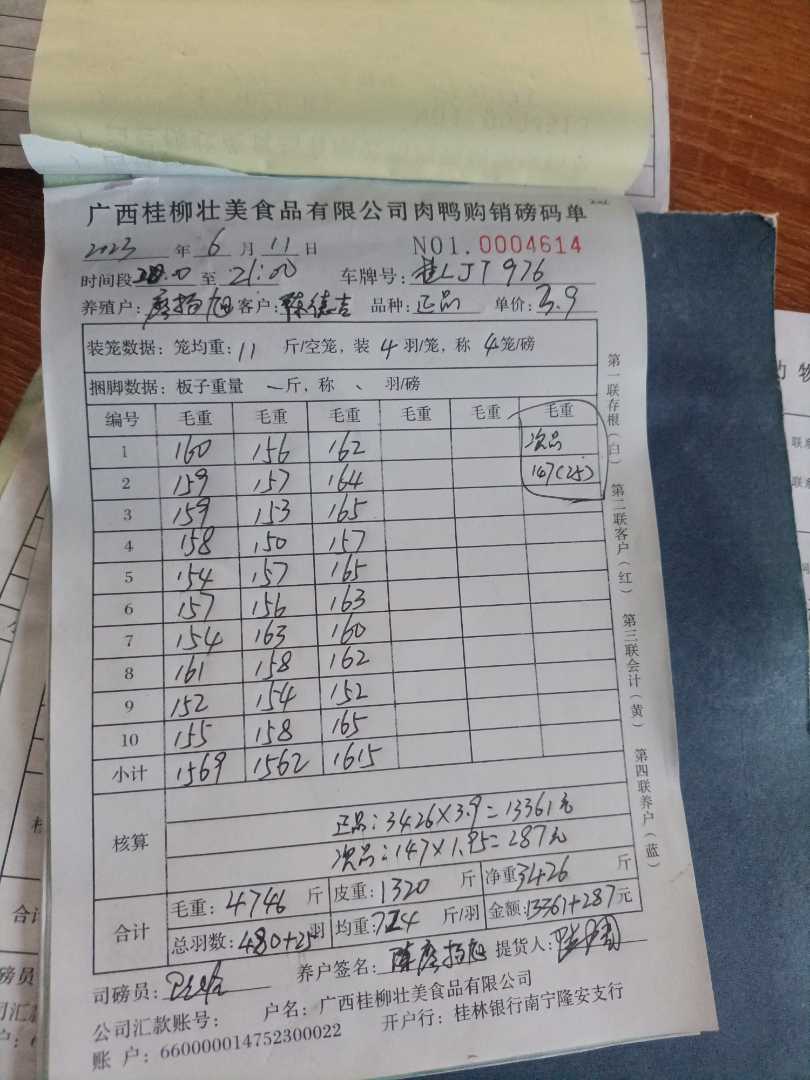 广西桂柳壮美食品有限公司肉鸭购销磅码单
2023 年 6 月 11 日 NO1.0004614
时间段 20:00 至 21:00 车牌号: 桂LJT976
养殖户: 廖扬旭 客户: 陈德吉 品种: 正品 单价: 3.9
装笼数据: 笼均重: 11 斤/空笼, 装 4 羽/笼, 称 4 笼/磅
捆脚数据: 板子重量 一斤, 称 、 羽/磅
编号 毛重 毛重 毛重 毛重 毛重 毛重
1 160 156 162 次品
2 159 157 164 147(25)
3 159 153 165
4 158 150 157
5 154 157 165
6 157 156 163
7 154 163 160
8 161 158 162
9 152 154 152
10 155 158 165
小计 1569 1562 1615
核算
正品: 3426×3.9=13361元
次品: 147×1.95=287元
合计
毛重: 4746 斤 皮重: 1320 斤 净重 3426 斤
总羽数: 480+25 羽 均重: 7.14 斤/羽 金额: 13361+287元
司磅员: 养户签名: 廖扬旭 提货人:
公司汇款账号: 户名: 广西桂柳壮美食品有限公司
账 户: 660000014752300022 开户行: 桂林银行南宁隆安支行
第一联存根(白) 第二联客户(红) 第三联会计(黄) 第四联养户(蓝)
动物
合计
磅员